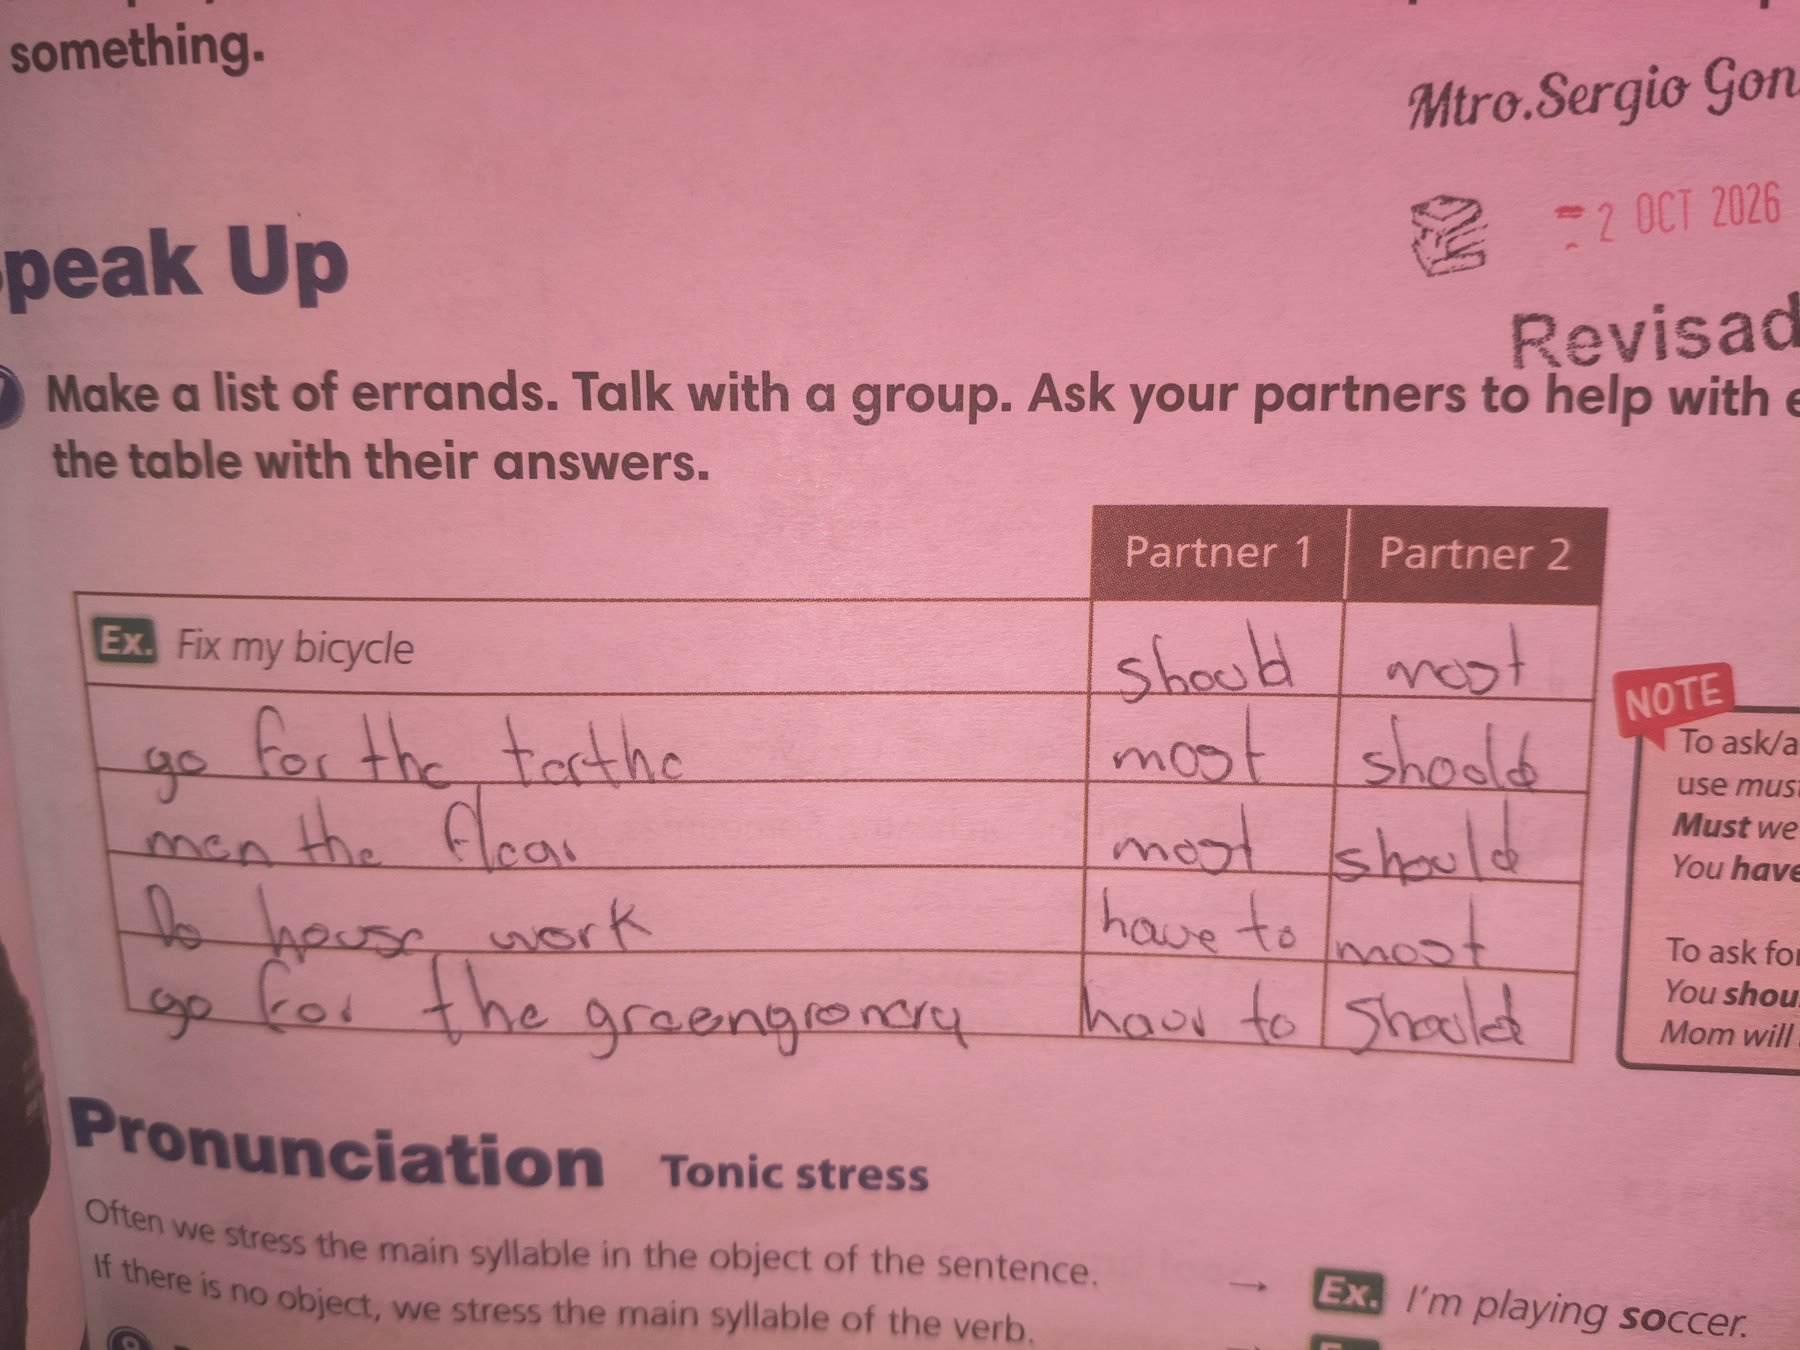 something.
Mtro.Sergio Gon
= 2 OCT 2026
peak Up
Revisad
7 Make a list of errands. Talk with a group. Ask your partners to help with e
the table with their answers.
Partner 1 Partner 2
Ex. Fix my bicycle should most
go for the most should
the most should
Do house work have to most
go for the greengroncry to should
NOTE
To ask/a
use must
Must we
You have
To ask for
You shou
Mom will
Pronunciation Tonic stress
Often we stress the main syllable in the object of the sentence.
If there is no object, we stress the main syllable of the verb.
→ Ex. I'm playing soccer.